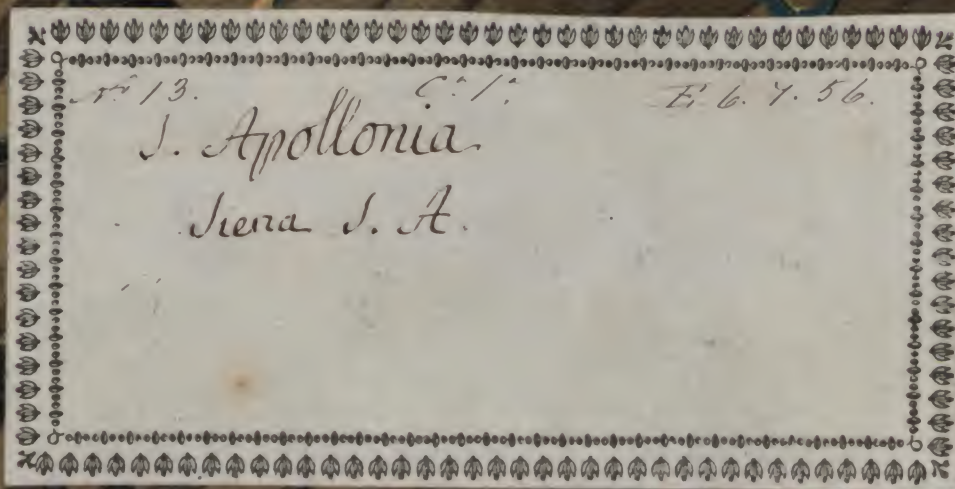 Nº 13. C. 1ª. E. 6. 7. 56.
S. Apollonia
Siena S. A.